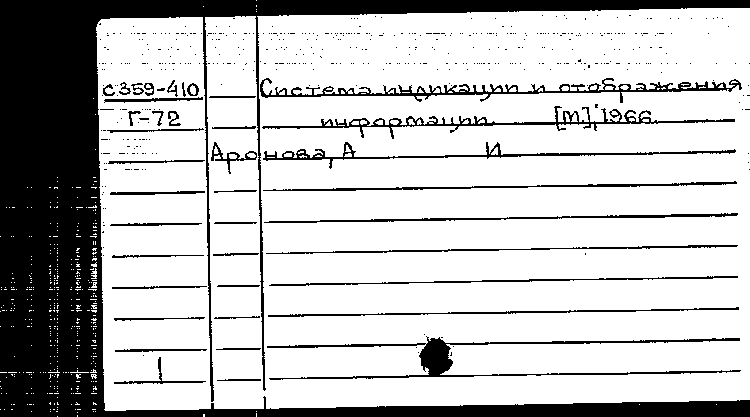 с359-410 Система индикации и отображения
Г-72 информации. [М], 1966
Аронова, А И
1